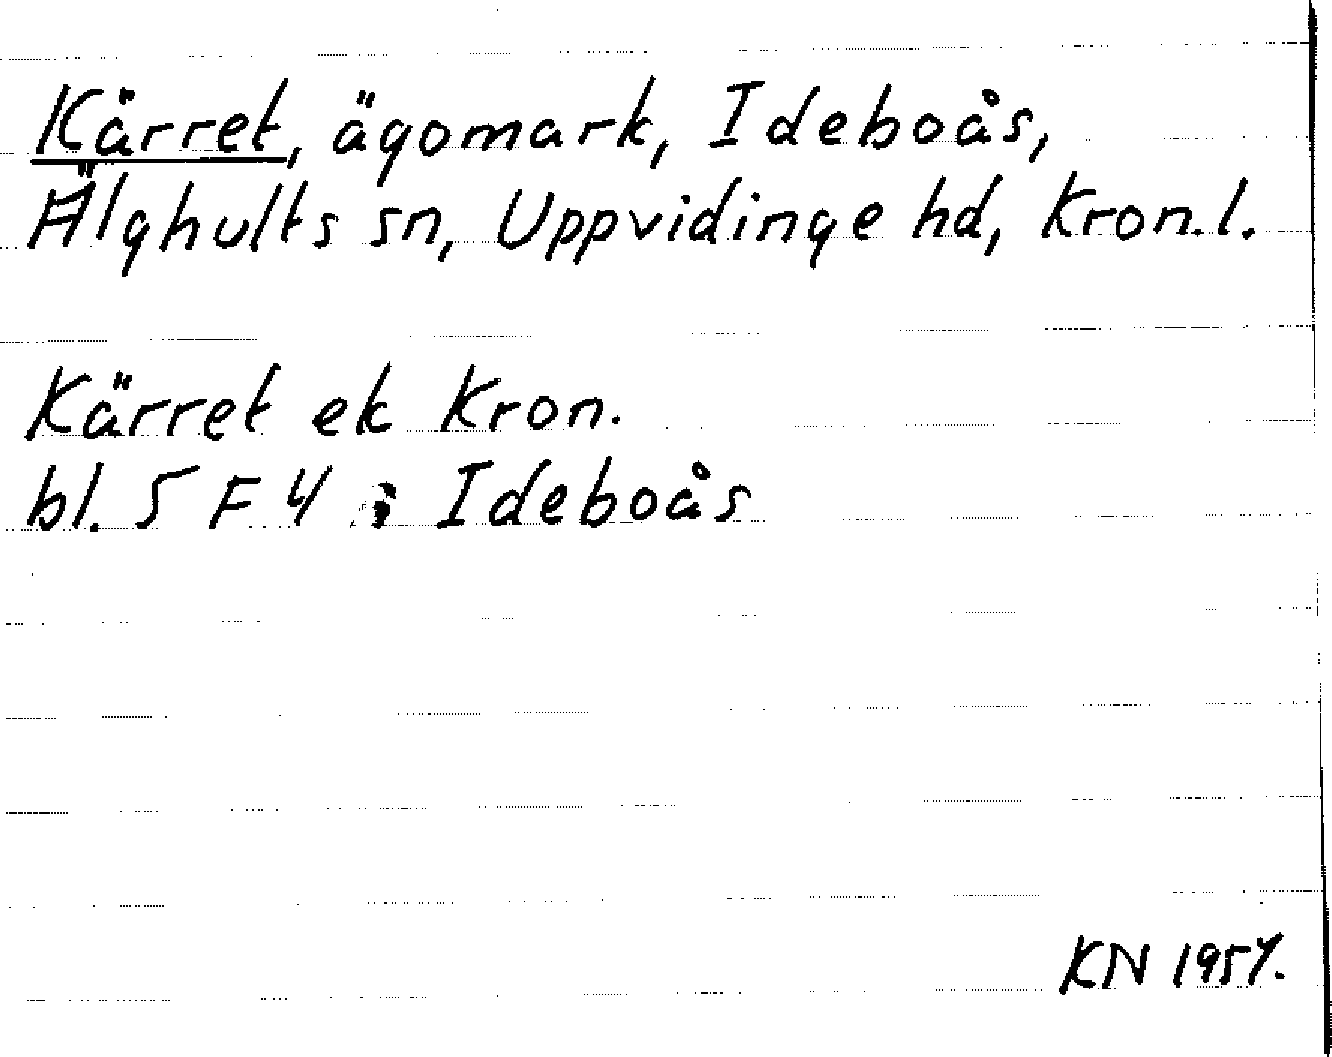 Kärret, ägomark, Ideboås,
Älghults sn, Uppvidinge hd, Kron.l.
Kärret ek Kron.
bl. 5 F 4 ; Ideboås
KN 1957.